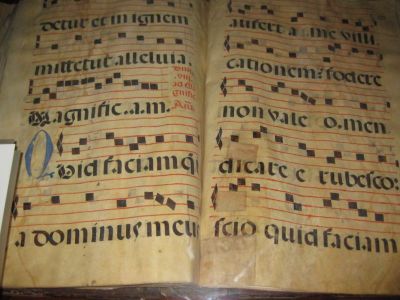 detur et in ignem
mittetur alleluia.
Magnific. a.m.
Quid faciam qui
a dominus meus
aufert a me vili
cationem? fodere
non valeo. men
dicare erubesco:
scio quid faciam